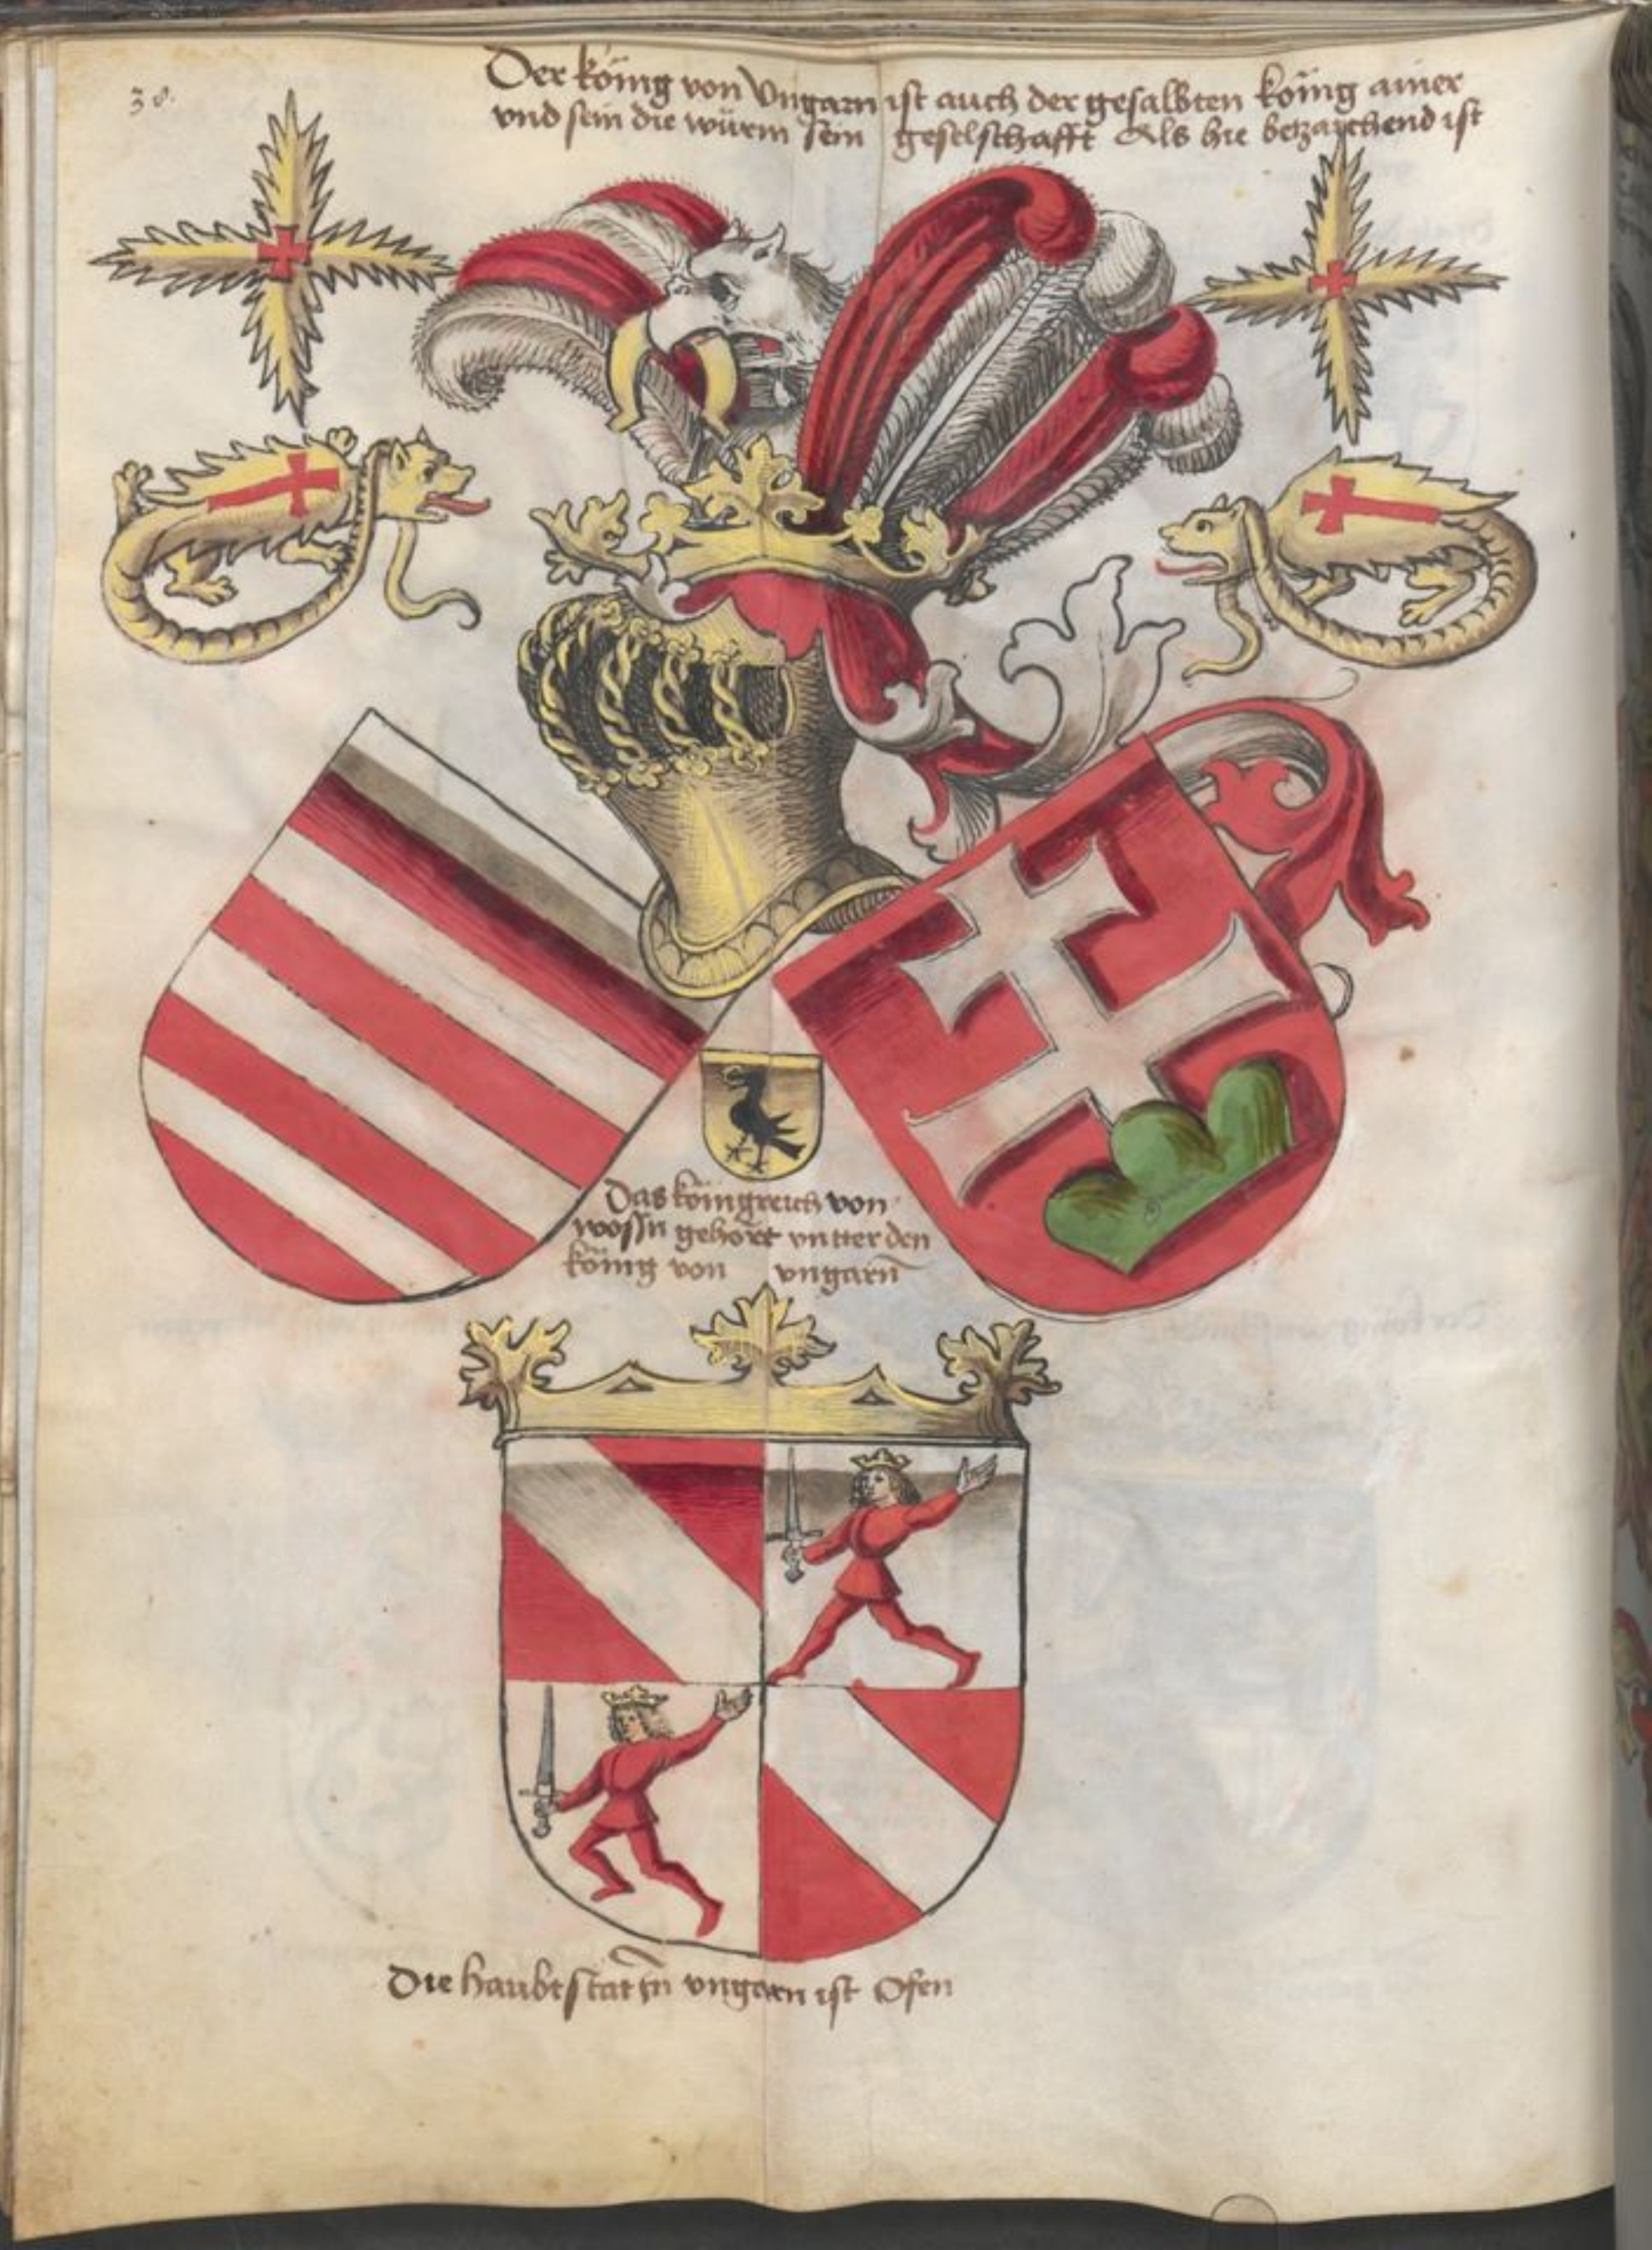 38.
Der köing von Vngarn ist auch der gesalbten köing ainer
vnd sein die würm sein geselschafft Als hie betzaichend ist
Das köingreich von
wossn gehört vntter den
köing von vngarn̄
Die haubtstat in vngarn ist Ofen